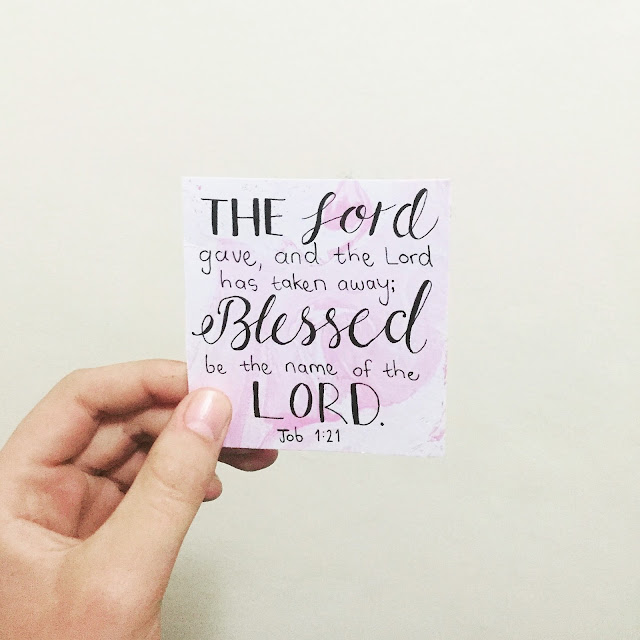 THE Lord
gave, and the Lord
has taken away;
Blessed
be the name of the
LORD.
Job 1:21